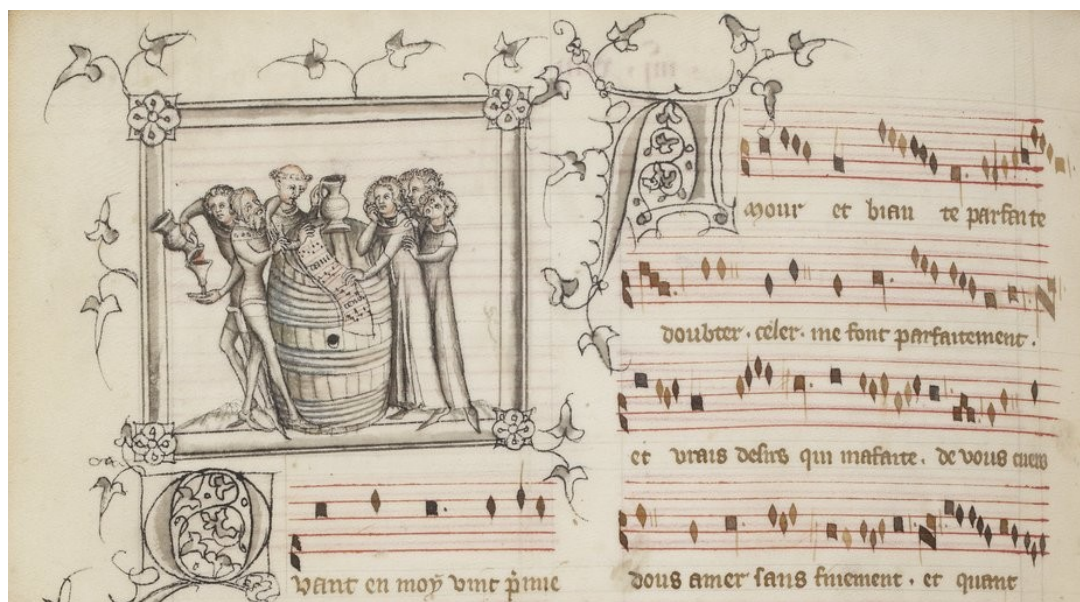 Qvant en moÿ vint p̄mie
Amour et biau te parfaite
doubter . celer . me font parfaitement .
et vrais desirs qui mafaite . de vous cuers
dous amer sans finement . et quant